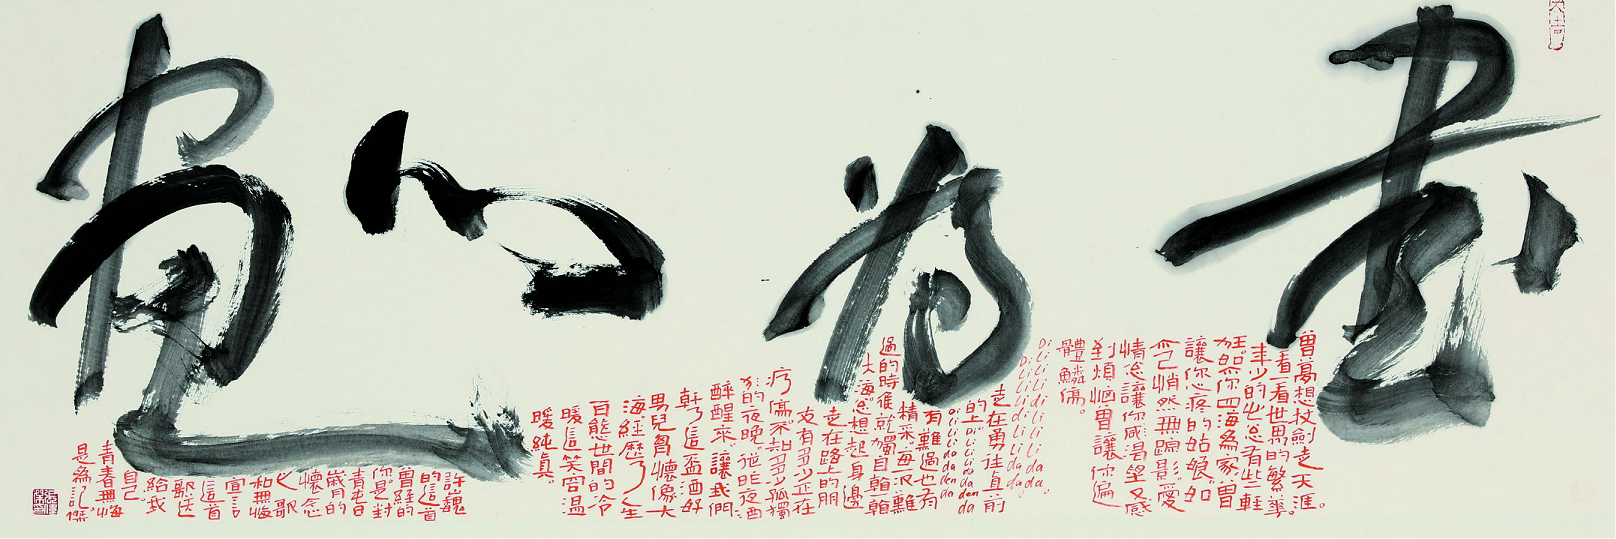 大吉
書為心畫
曾夢想仗劍走天涯。
看一看世界的繁華。
年少的心总有些輕
狂。如你四海為家。曾
讓你心疼的姑娘。如
今已悄然無踪影。愛
情总讓你感渴望又感
到煩惱曾讓你遍
體鱗傷。
DiLiLiLidiLiLiLida。
DiLiLiLidiLiLida da
走在勇往直前
的上DiLiLiLida da da
DiLiLiLida da da
有難過也有
精采。每次難
過的時後就獨自看一看
大海总想起身邊
走在路上的朋
友有多少正在
疗傷。不知多少孤獨
的夜晚。從昨夜酒
醉醒來。讓我們
幹了這盃酒好
男兒胸懷像大
海經歷了人生
百態世間的冷
暖這笑容溫
暖純真。
許巍
的這首
曾經的
你是對
青春
歲月的
懷念
也歌
和無悔
宣言
這首
歌送
給我
自己
青春無悔
是為記